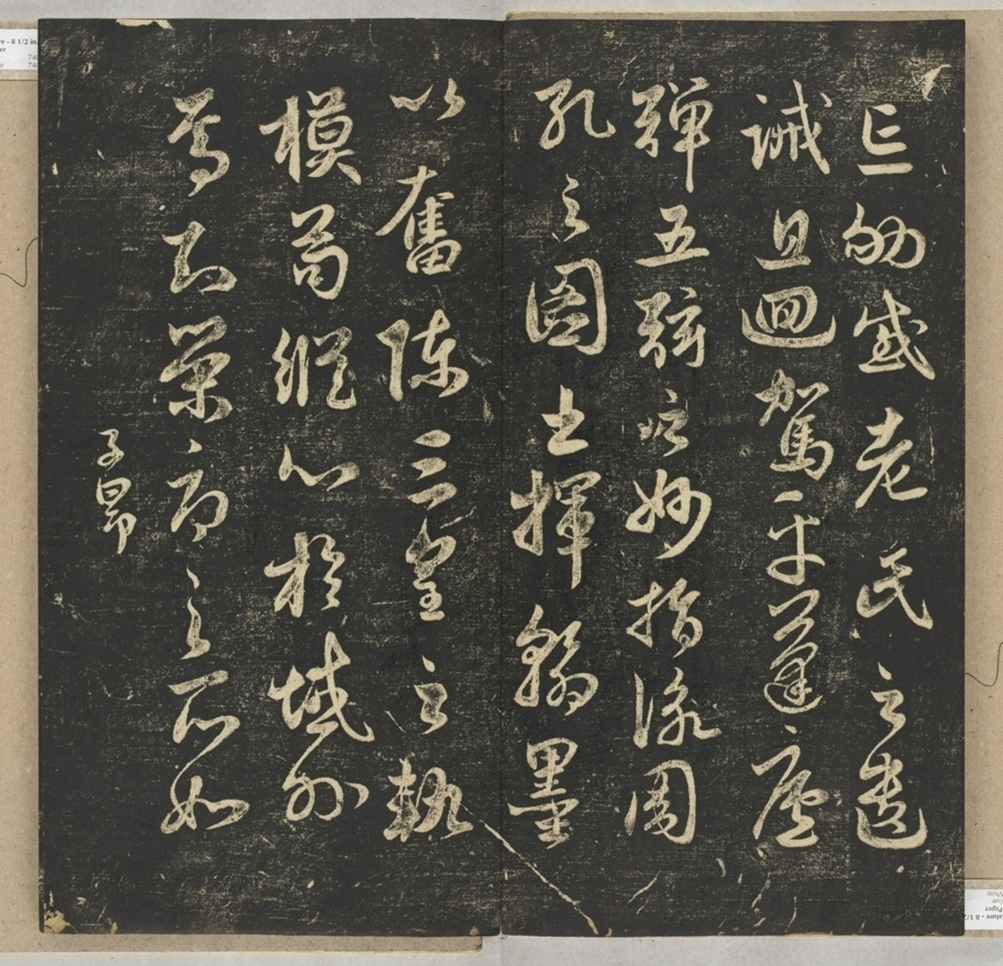 忘劬感老氏之遺
誡且迴駕乎蓬廬
彈五絃之妙指詠周
孔之圖書揮翰墨
以奮陳三皇之軌
模苟縱心於域外
焉知榮辱之所如
子昂